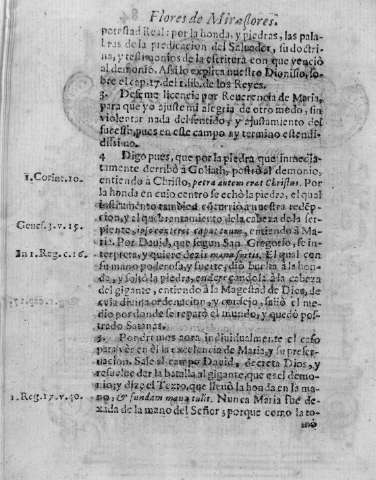 Flores de Miraflores.
potestad Real: por la honda, y piedras, las pala-
bras de la predicacion del Salvador, su doctri-
na, y testimonios de la escritura con que venciò
al demonio. Assi lo explica nuestro Dionisio, so-
bre el cap. 17. del 1. lib. de los Reyes.
3. Desme licencia por Reverencia de Maria,
para que yo ajuste mi alegria de otro modo, sin
violentar nada del sentido, y ajustamiento del
sucesso, pues en este campo ay termino estendi-
dissimo.
4 Digo pues, que por la piedra que inmedia-
tamente derribò à Goliath, postrò al demonio,
1. Corint. 10. entiendo à Christo, petra autem erat Christus. Por
la honda en cuio centro se echò la piedra, el qual
instrumento tambien concurriò a nuestra redép-
cion, y el quebrantamiento de la cabeza de la ser-
Genes. 3. v. 15. piente, ipsa conteret caput tuum, entiendo à Ma-
ria. Por David, que segun San Gregorio, se in-
In 1. Reg. c. 16. terpreta, y quiere dezir manu fortis. El qual con
su mano poderosa, y fuerte, diò buelta à la hon-
da, y soltò la piedra, enderezandola à la cabeza
del gigante, entiendo à la Magestad de Dios, de
cuia divina ordenacion, y consejo, saliò el me-
dio por donde se reparò el mundo, y quedò pos-
trado Satanàs.
5. Pondremos aora individualmente el caso
para vèr en èl la excelencia de Maria, y su preser-
vacion. Sale al campo David, decreta Dios, y
resuelve dàr la batalla al gigante, que es el demo-
nio; y dize el Texto, que llevò la honda en la ma-
1. Reg. 17. v. 40. no, & fundam manu tulit. Nunca Maria fuè de-
xada de la mano del Señor; porque como la to-
mò